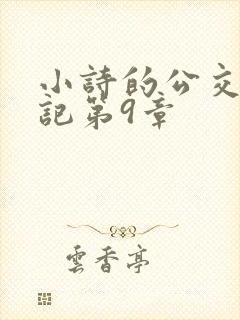 小詩的公交
記第9章
雲香亭